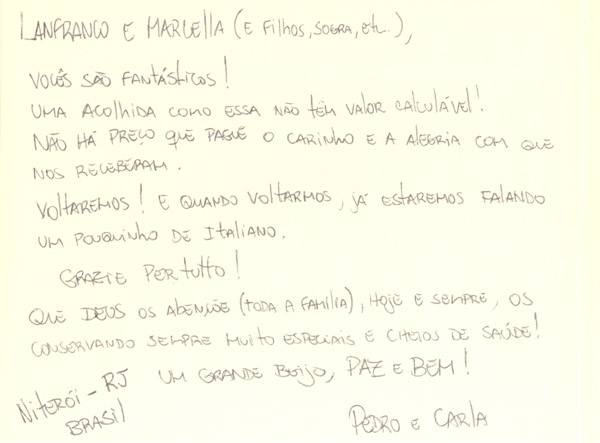 LANFRANCO E MARCELLA (E FILHOS, SOGRA, ETC..),
VOCÊS SÃO FANTÁSTICOS!
UMA ACOLHIDA COMO ESSA NÃO TÊM VALOR CALCULÁVEL!
NÃO HÁ PREÇO QUE PAGUE O CARINHO E A ALEGRIA COM QUE
NOS RECEBERAM.
VOLTAREMOS! E QUANDO VOLTARMOS, JÁ ESTAREMOS FALANDO
UM POUQUINHO DE ITALIANO.
GRAZIE PER TUTTO!
QUE DEUS OS ABENÇÕE (TODA A FAMÍLIA), HOJE E SEMPRE, OS
CONSERVANDO SEMPRE MUITO ESPECIAIS E CHEIOS DE SAÚDE!
UM GRANDE BEIJO, PAZ E BEM!
NITERÓI - RJ
BRASIL
PEDRO E CARLA